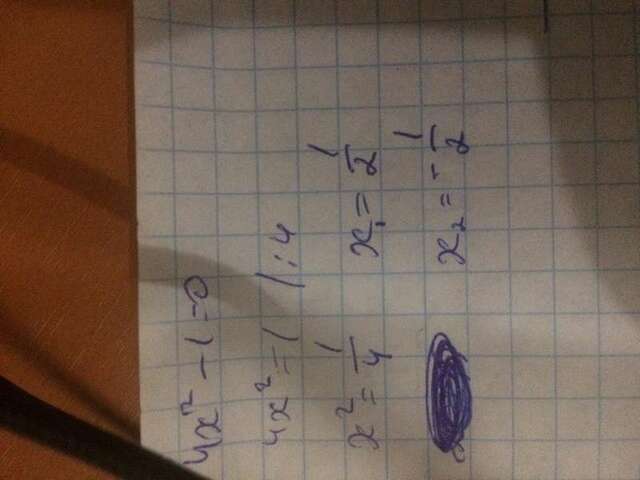 4x² - 1 = 0
4x² = 1 | : 4
x² = 1/4 x₁ = 1/2
x₂ = - 1/2